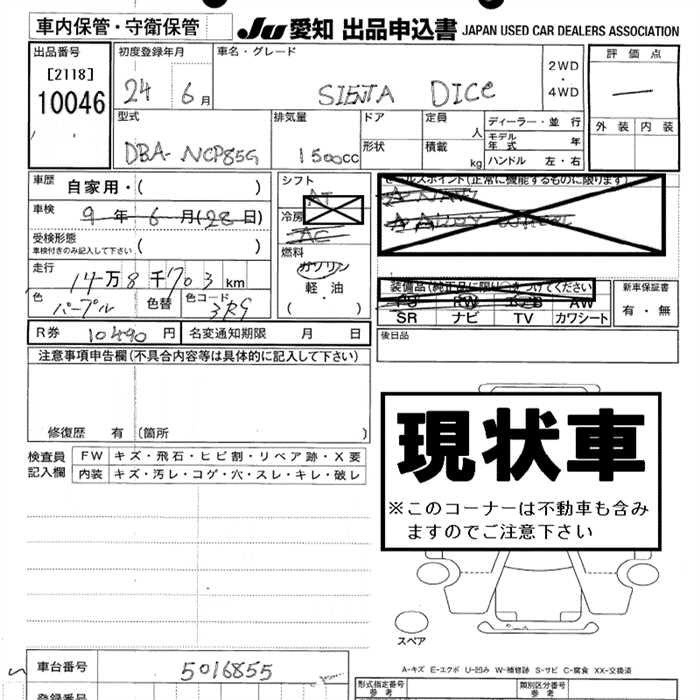 車内保管・守衛保管 JU 愛知 出品申込書 JAPAN USED CAR DEALERS ASSOCIATION
出品番号
[2118]
10046
初度登録年月
24 6月
車名・グレード
SIENTA DICE
2WD
・
4WD
評価点
—
外装 内装
型式
DBA-NCP85G
排気量
1500cc
ドア
形状
定員
人
積載
kg
ディーラー・並行
モデル年式 年
ハンドル 左・右
車歴 自家用・( )
車検 9年6月(28日)
受検形態
車検付きのみ記入して下さい ( )
走行 14万8千703km
色 パープル 色替 色コード 3R9
シフト
AT
冷房
AC
燃料
ガソリン
軽・油
( )
セールスポイント(正常に機能するものに限ります)
装備品(純正品に限り○をつけてください)
PS PW エアB AW
SR ナビ TV カワシート
新車保証書
有・無
R券 10490円 名変通知期限 月 日
後日品
注意事項申告欄(不具合内容等は具体的に記入して下さい)
修復歴 有 (箇所 )
検査員
記入欄
FW キズ・飛石・ヒビ割・リペア跡・X要
内装 キズ・汚レ・コゲ・穴・スレ・キレ・破レ
現状車
※このコーナーは不動車も含み
ますのでご注意下さい
スペア
A-キズ E-エクボ U-凹み W-補修跡 S-サビ C-腐食 XX-交換済
車台番号 5016855
登録番号
形式指定番号
参考
類別区分番号
参考